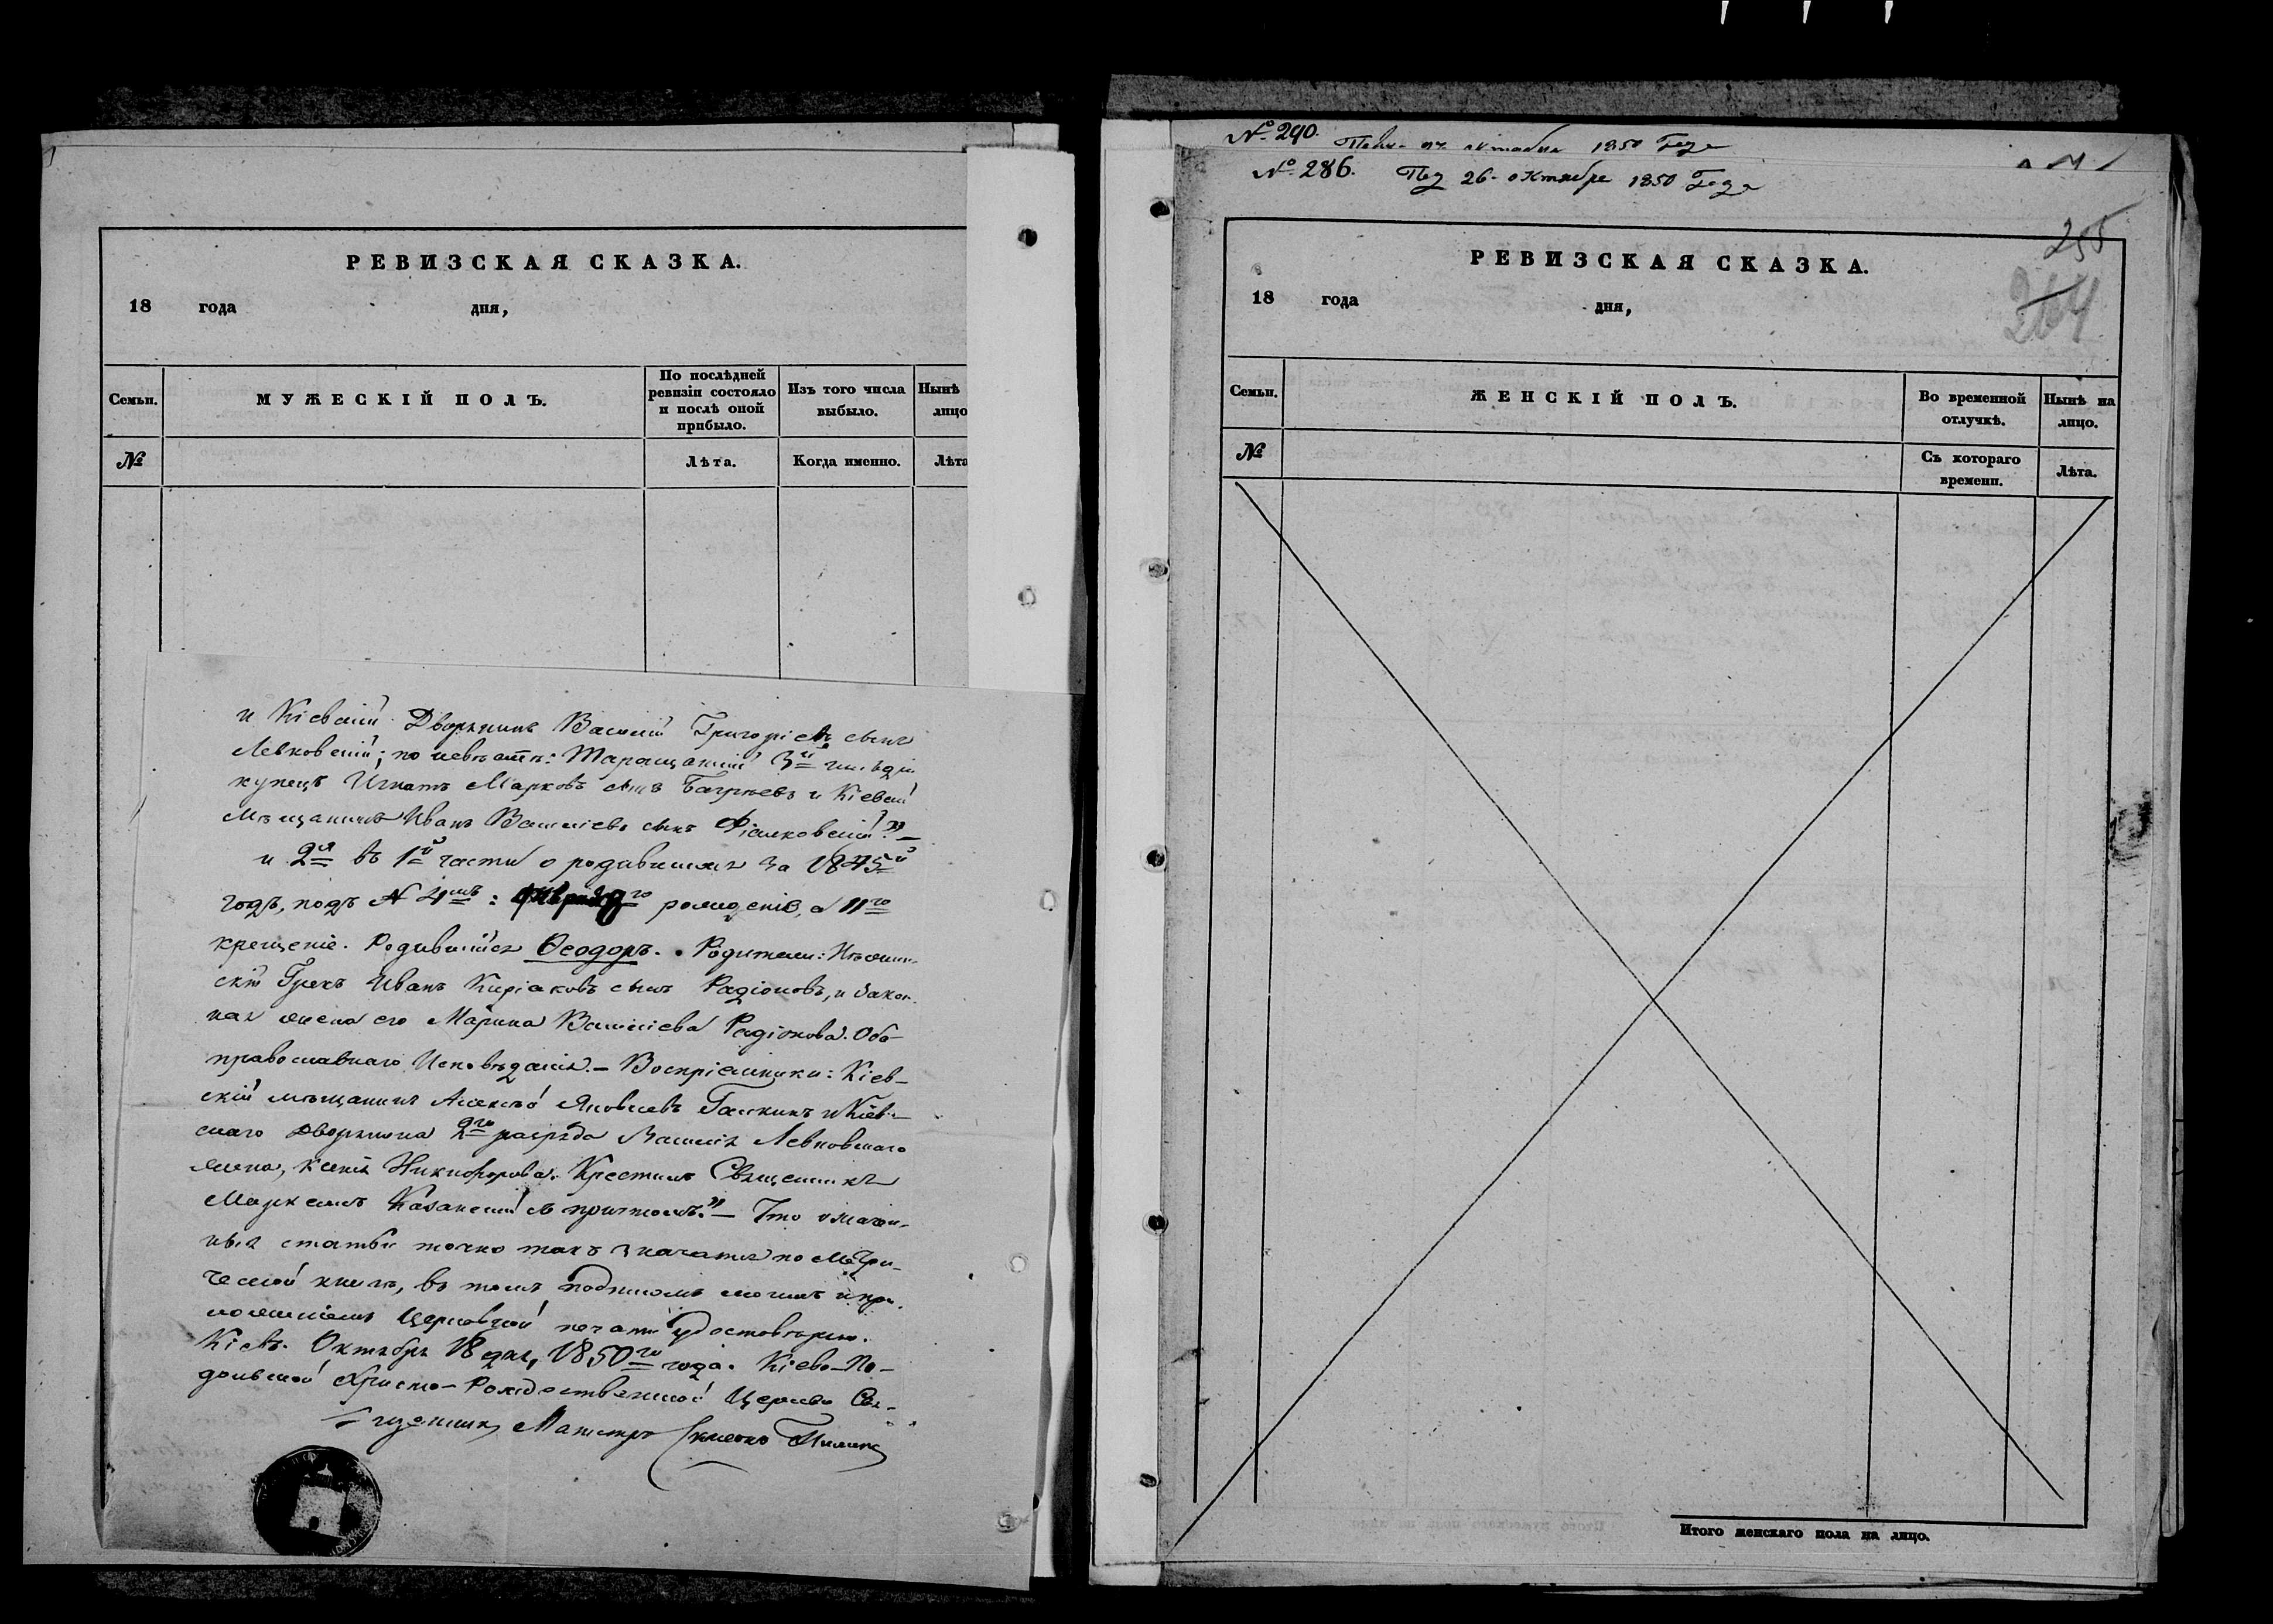 РЕВИЗСКАЯ СКАЗКА.
18 года дня,
Семьи.
МУЖЕСКІЙ ПОЛЪ.
По послѣдней
ревизіи состояло
и послѣ оной
прибыло.
Изъ того числа
выбыло.
Нынѣ
лицо
№
Лѣта.
Когда именно.
Лѣта
и Кіевскій Дворянинъ Василій Григоріевъ сынъ
Левковскій; по невѣстѣ: Таращанскій 3й гильдіи
купецъ Игнатъ Марковъ сынъ и Кіевскій
Мѣщанинъ Иванъ Василіевъ сынъ Фіалковскій."—
и 2я въ 1й части о родившихся за 1845й
годъ, подъ N 4мъ: рожденіе, а 11го
крещеніе. Родившійся Ѳеодоръ. Родители: Нѣжин-
скій Грекъ Иванъ Киріаковъ сынъ Радіоновъ, и закон-
ная жена его Марина Василіева Радіонова. Оба
православнаго Исповѣданія.— Воспріемники: Кіев-
скій мѣщанинъ Алексѣй Яковлевъ и Кіев-
скаго Дворянина 2го разряда Василія Левковскаго
жена, Ксенія Никифорова. Крестилъ Священникъ
Маркеллъ Казанскій съ причтомъ."— Что
статьи точно такъ значатся по Метри-
ческой книгѣ, въ томъ подписомъ моимъ и при-
ложеніемъ Церковной печати удостовѣряю.
Кіевъ. Октября 18 дня, 1850го года. Кіево-По-
дольской Христо-Рождественской Церкви Свя-
щенникъ Магистръ
№ 290. октября 1850 Года
№ 286. 26 октября 1850 Года
255
264
РЕВИЗСКАЯ СКАЗКА.
18 года дня,
Семьи.
ЖЕНСКІЙ ПОЛЪ.
Во временной
отлучкѣ.
Нынѣ на
лицо.
№
Съ котораго
времени.
Лѣта.
Итого женскаго пола на лицо.